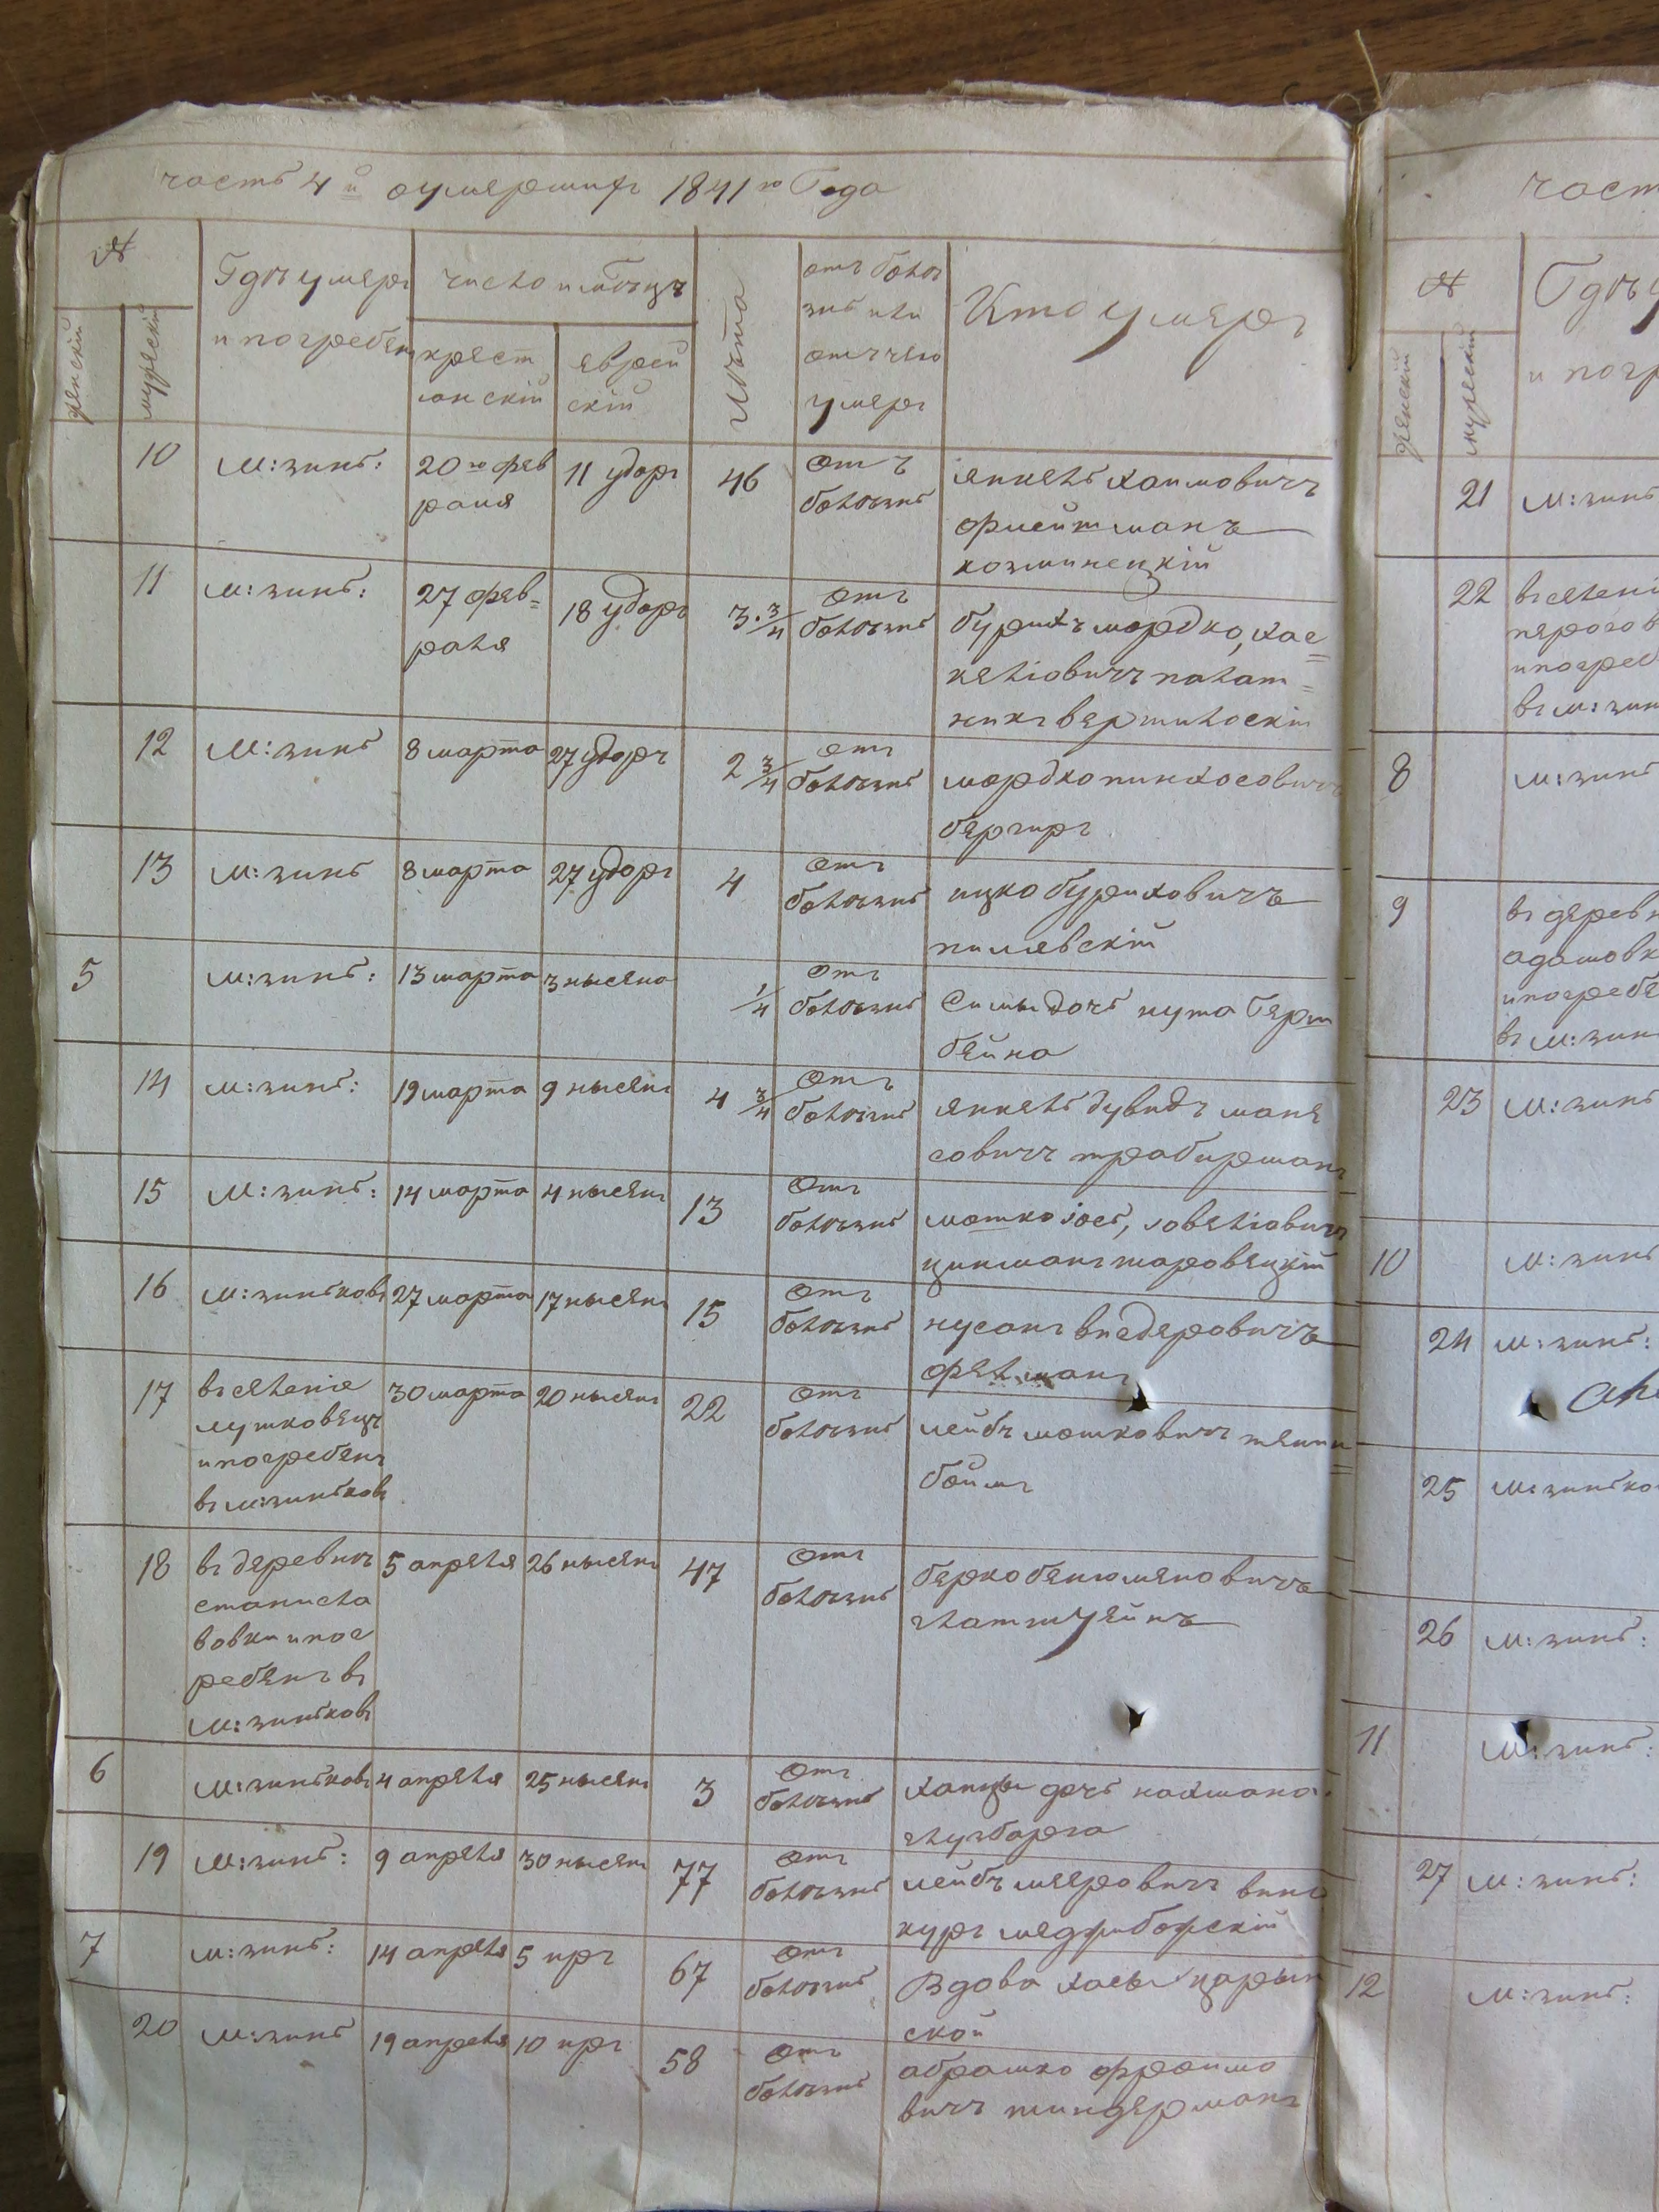 часть 4й оумершихъ 1841го Года
№
Гдѣ умеръ
и погребенъ
число и мѣсяцъ
женскій
мужескій
хрест
іанскій
еврей
скій
Лѣта
отъ болѣ
зни или
отъ чего
умеръ
Кто умеръ
10 м: зинь: 20го фев
раля 11 удоръ 46 отъ
болѣзни янкель хаимовичъ
флейтманъ
козминецкій
11 м: зинь: 27 фев=
раля 18 удоръ 3.3/4 отъ
болѣзни бурихъ мордко, хас=
келіовичъ палат=
никъ
12 м: зинь 8 марта 27 удоръ 2 3/4 отъ
болѣзни мордко пинхосовичъ
бергиръ
13 м: зинь 8 марта 27 удоръ 4 отъ
болѣзни ицко буриховичъ
пилявскій
5 м: зинь: 13 марта 3 нысана 1/4 отъ
болѣзни Симы дочь нута Герш
бейна
14 м: зинь: 19 марта 9 нысанъ 4 3/4 отъ
болѣзни янкель дувидъ мане
совичъ траберманъ
15 м: зинь: 14 марта 4 нысенъ 13 отъ
болѣзни мошко іось, іовеліовичъ
цинманъ шаровецкій
16 м: зиньковѣ 27 марта 17 нысенъ 15 отъ
болѣзни нусанъ висдеровичъ
фельманъ
17 въ селеніе
мушковецъ
и погребенъ
въ м: зиньковѣ 30 марта 20 нысенъ 22 отъ
болѣзни лейбъ мошковичъ тенин=
боймъ
18 въ деревнѣ
станисла
вовки и пог
ребенъ въ
м: зиньковѣ 5 апреля 26 нысенъ 47 отъ
болѣзни берко бенюменовичъ
глатштейнъ
6 м: зиньковѣ 4 апреля 25 нысенъ 3 отъ
болѣзни ханцы дочь нахмана
глузбарга
19 м: зинь: 9 апреля 30 нысенъ 77 отъ
болѣзни лейбъ мееровичъ вино
куръ меджибожскій
7 м: зинь: 14 апреля 5 иръ 67 отъ
болѣзни Вдова хасы царын
ской
20 м: зинь 19 апреля 10 иръ 58 отъ
болѣзни абрашко фроимо
вичъ тиндерманъ
част
№
Гдѣ у
и погр
женскій
мужескій
21 м: зинь
22 въ селені
перогов
и погреб
въ м: зин
8 м: зинь
9 въ деревн
адамовк
и погребе
въ м: зин
23 м: зинь
10 м: зинь
24 м: зинь:
25 м: зинько
26 м: зинь:
11 м: зинь:
27 м: зинь:
12 м: зинь: